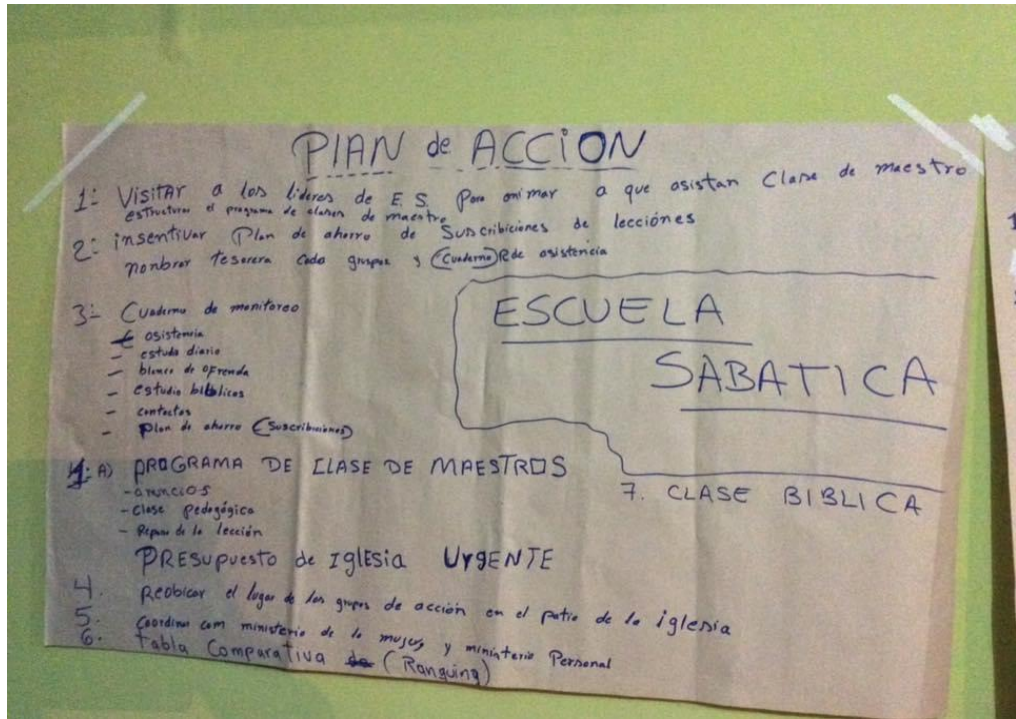 PlAN de ACCiON
1: VisitAR a los líderes de E. S. Para animar a que asistan Clase de maestro
estructurar el programa de clases de maestro
2: insentivar Plan de ahorro de Suscribiciones de lecciónes
nonbrar tesorera cada grupos y (Cuaderno) de asistencia
3- Cuaderno de monitoreo
- asistencia
- estudo diario
- blanco de ofrenda
- estudio bíblicos
- contactos
- Plan de ahorro (Suscribiciones)
ESCUELA
SABATICA
A) PROGRAMA DE CLASE DE MAESTROS
- anuncios
- Clase pedagógica
- Repaso de la lección
7. CLASE BIBLICA
PRESupuesto de IglEsia UrgENTE
4. Reobicar el lugar de los grupos de acción en el patio de la iglesia
5. Coordinar com ministerio de la mujer y ministerio Personal
6. tabla Comparativa (Ranguing)